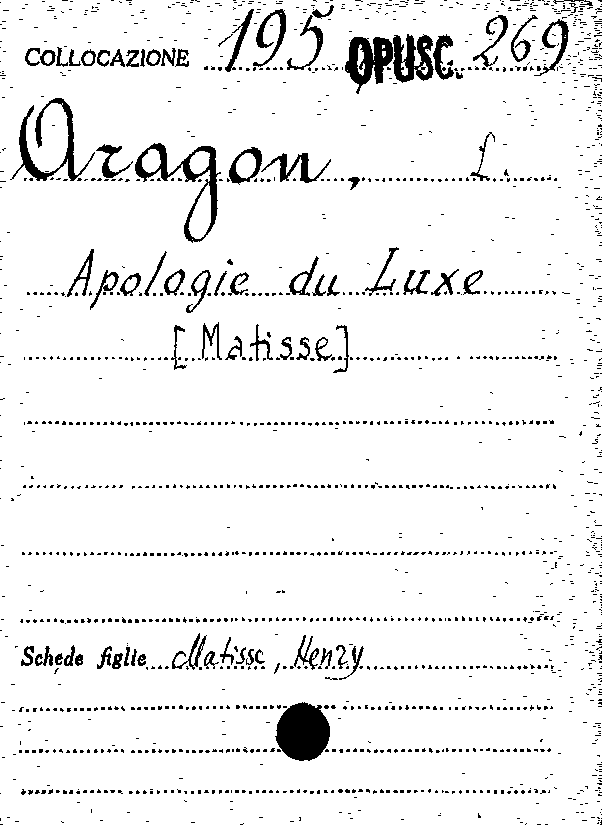 COLLOCAZIONE 195 OPUSC. 269
Aragon, L.
Apologie du Luxe
[Matisse]
Schede figlie Matisse, Henry